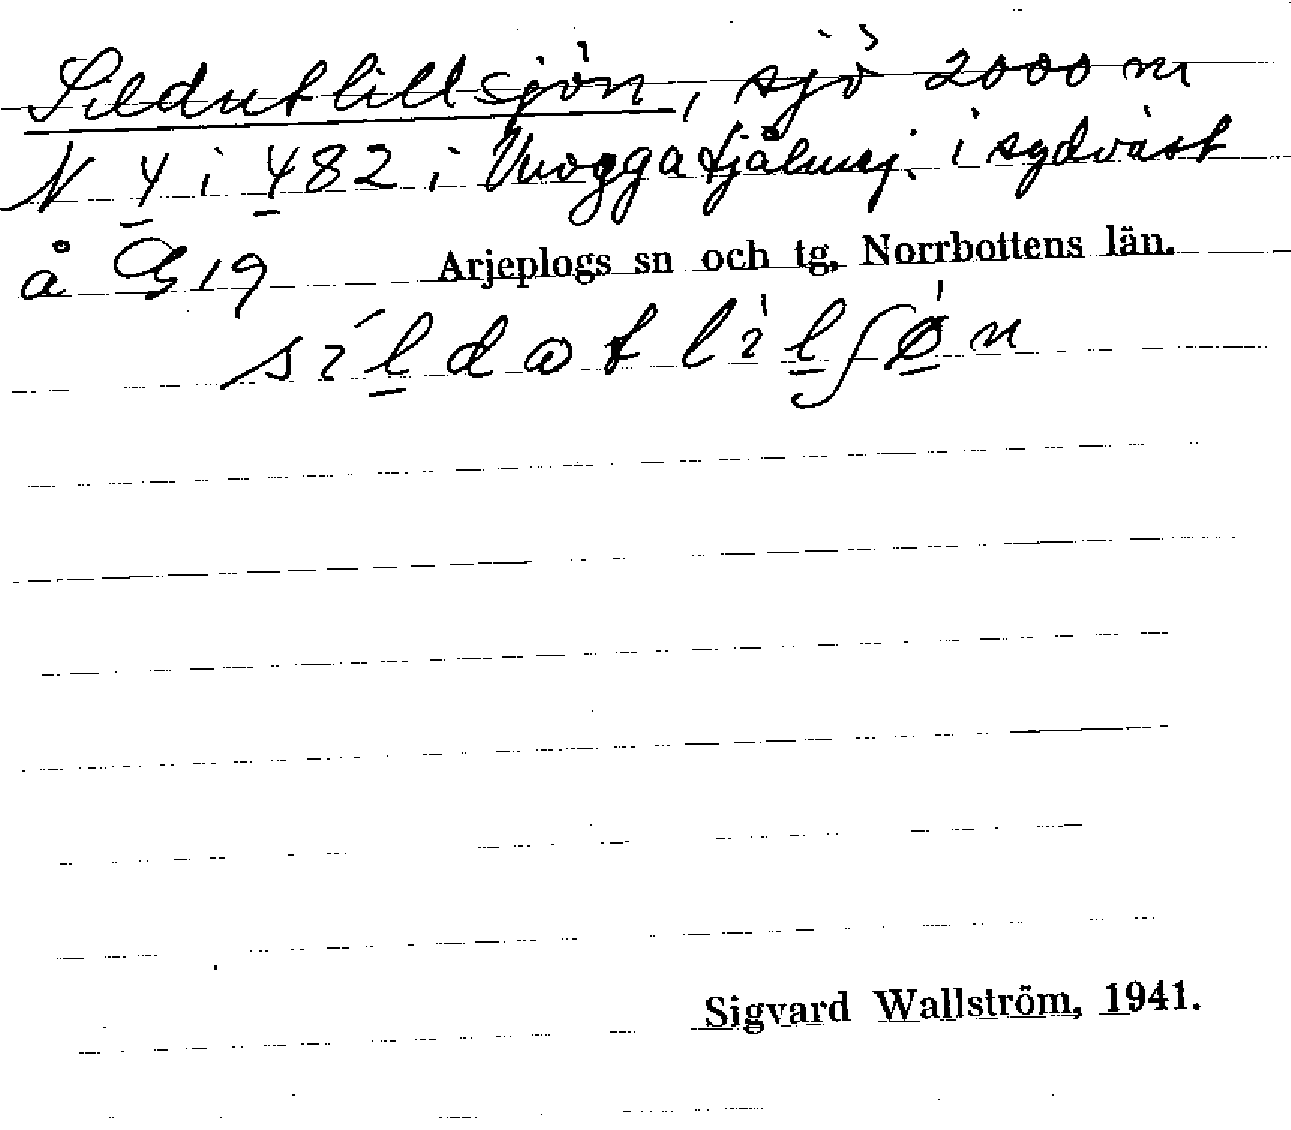 Sildutlillsjön, sjö 2000 m
N 4 i 482 i tjålmej. i sydväst
å G 19 Arjeplogs sn och tg, Norrbottens län.
Sigvard Wallström, 1941.